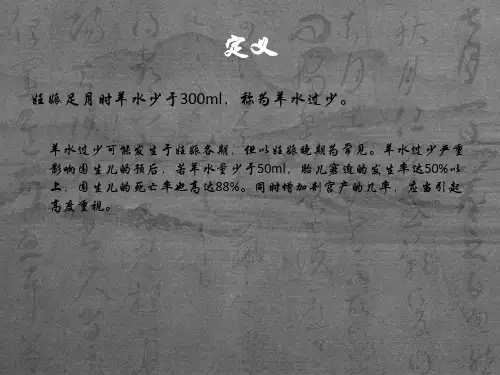 定义
妊娠足月时羊水少于300ml，称为羊水过少。
羊水过少可能发生于妊娠各期，但以妊娠晚期为常见。羊水过少严重
影响围生儿的预后，若羊水量少于50ml，胎儿窘迫的发生率达50%以
上，围生儿的死亡率也高达88%。同时增加剖宫产的几率，应当引起
高度重视。